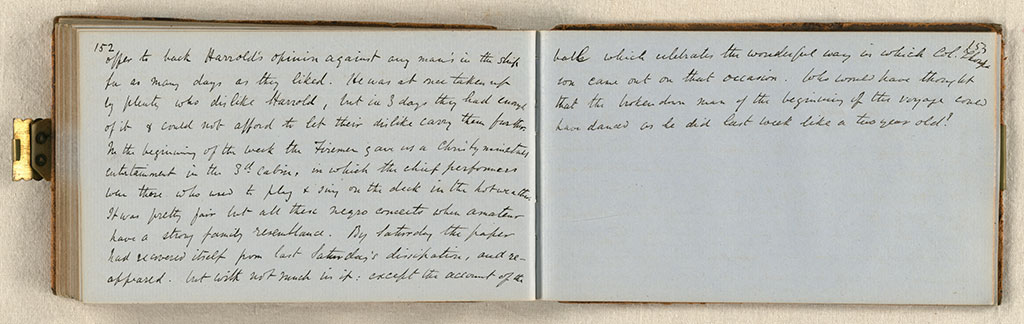 152
offer to back Harrold's opinion against any man's in the ship
for as many days as they liked. He was at once taken up
by plenty who dislike Harrold, but in 3 days they had enough
of it & could not afford to let their dislike carry them further.
In the beginning of the week the Firemen gave us a Christy minstrels
entertainment in the 3rd cabin, in which the chief performers
were those who used to play & sing on the deck in the hot weather.
It was pretty fair but all these negro concerts when amateur
have a strong family resemblance. By Saturday the paper
had recovered itself from last Saturday's dissipation, and re-
appeared. but with not much in it: except the account of the
153
ball which celebrates the wonderful way in which Col.
son came out on that occasion. Who would have thought
that the broken down man of the beginning of the voyage could
have danced as he did last week like a two year old!